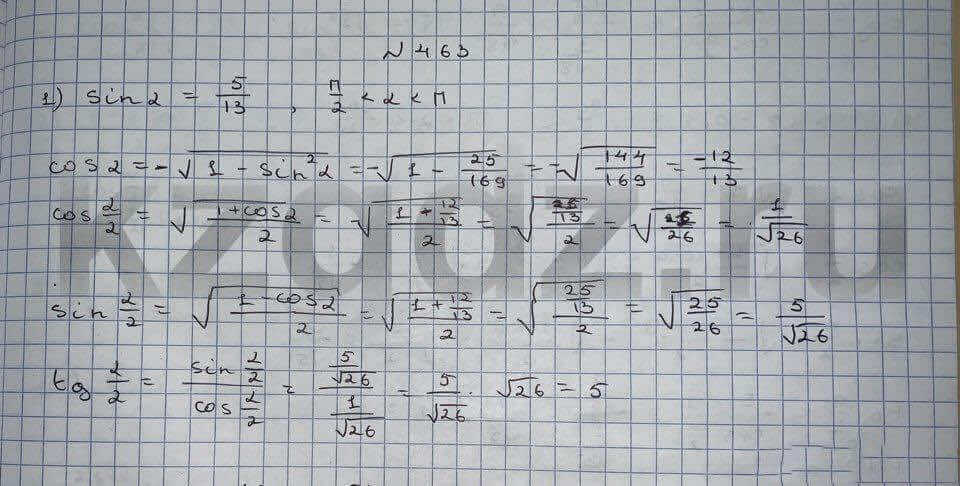 N 463
1) sin α = 5/13 , π/2 < α < π
cos α = -√(1 - sin²α) = -√(1 - 25/169) = -√(144/169) = -12/13
cos α/2 = √((1+cos α)/2) = √((1 - 12/13)/2) = √((/13)/2) = √(/26) = 1/√26
sin α/2 = √((1-cos α)/2) = √((1 + 12/13)/2) = √((25/13)/2) = √(25/26) = 5/√26
tg α/2 = (sin α/2)/(cos α/2) = (5/√26)/(1/√26) = 5/√26 · √26 = 5
kzgdz.ru